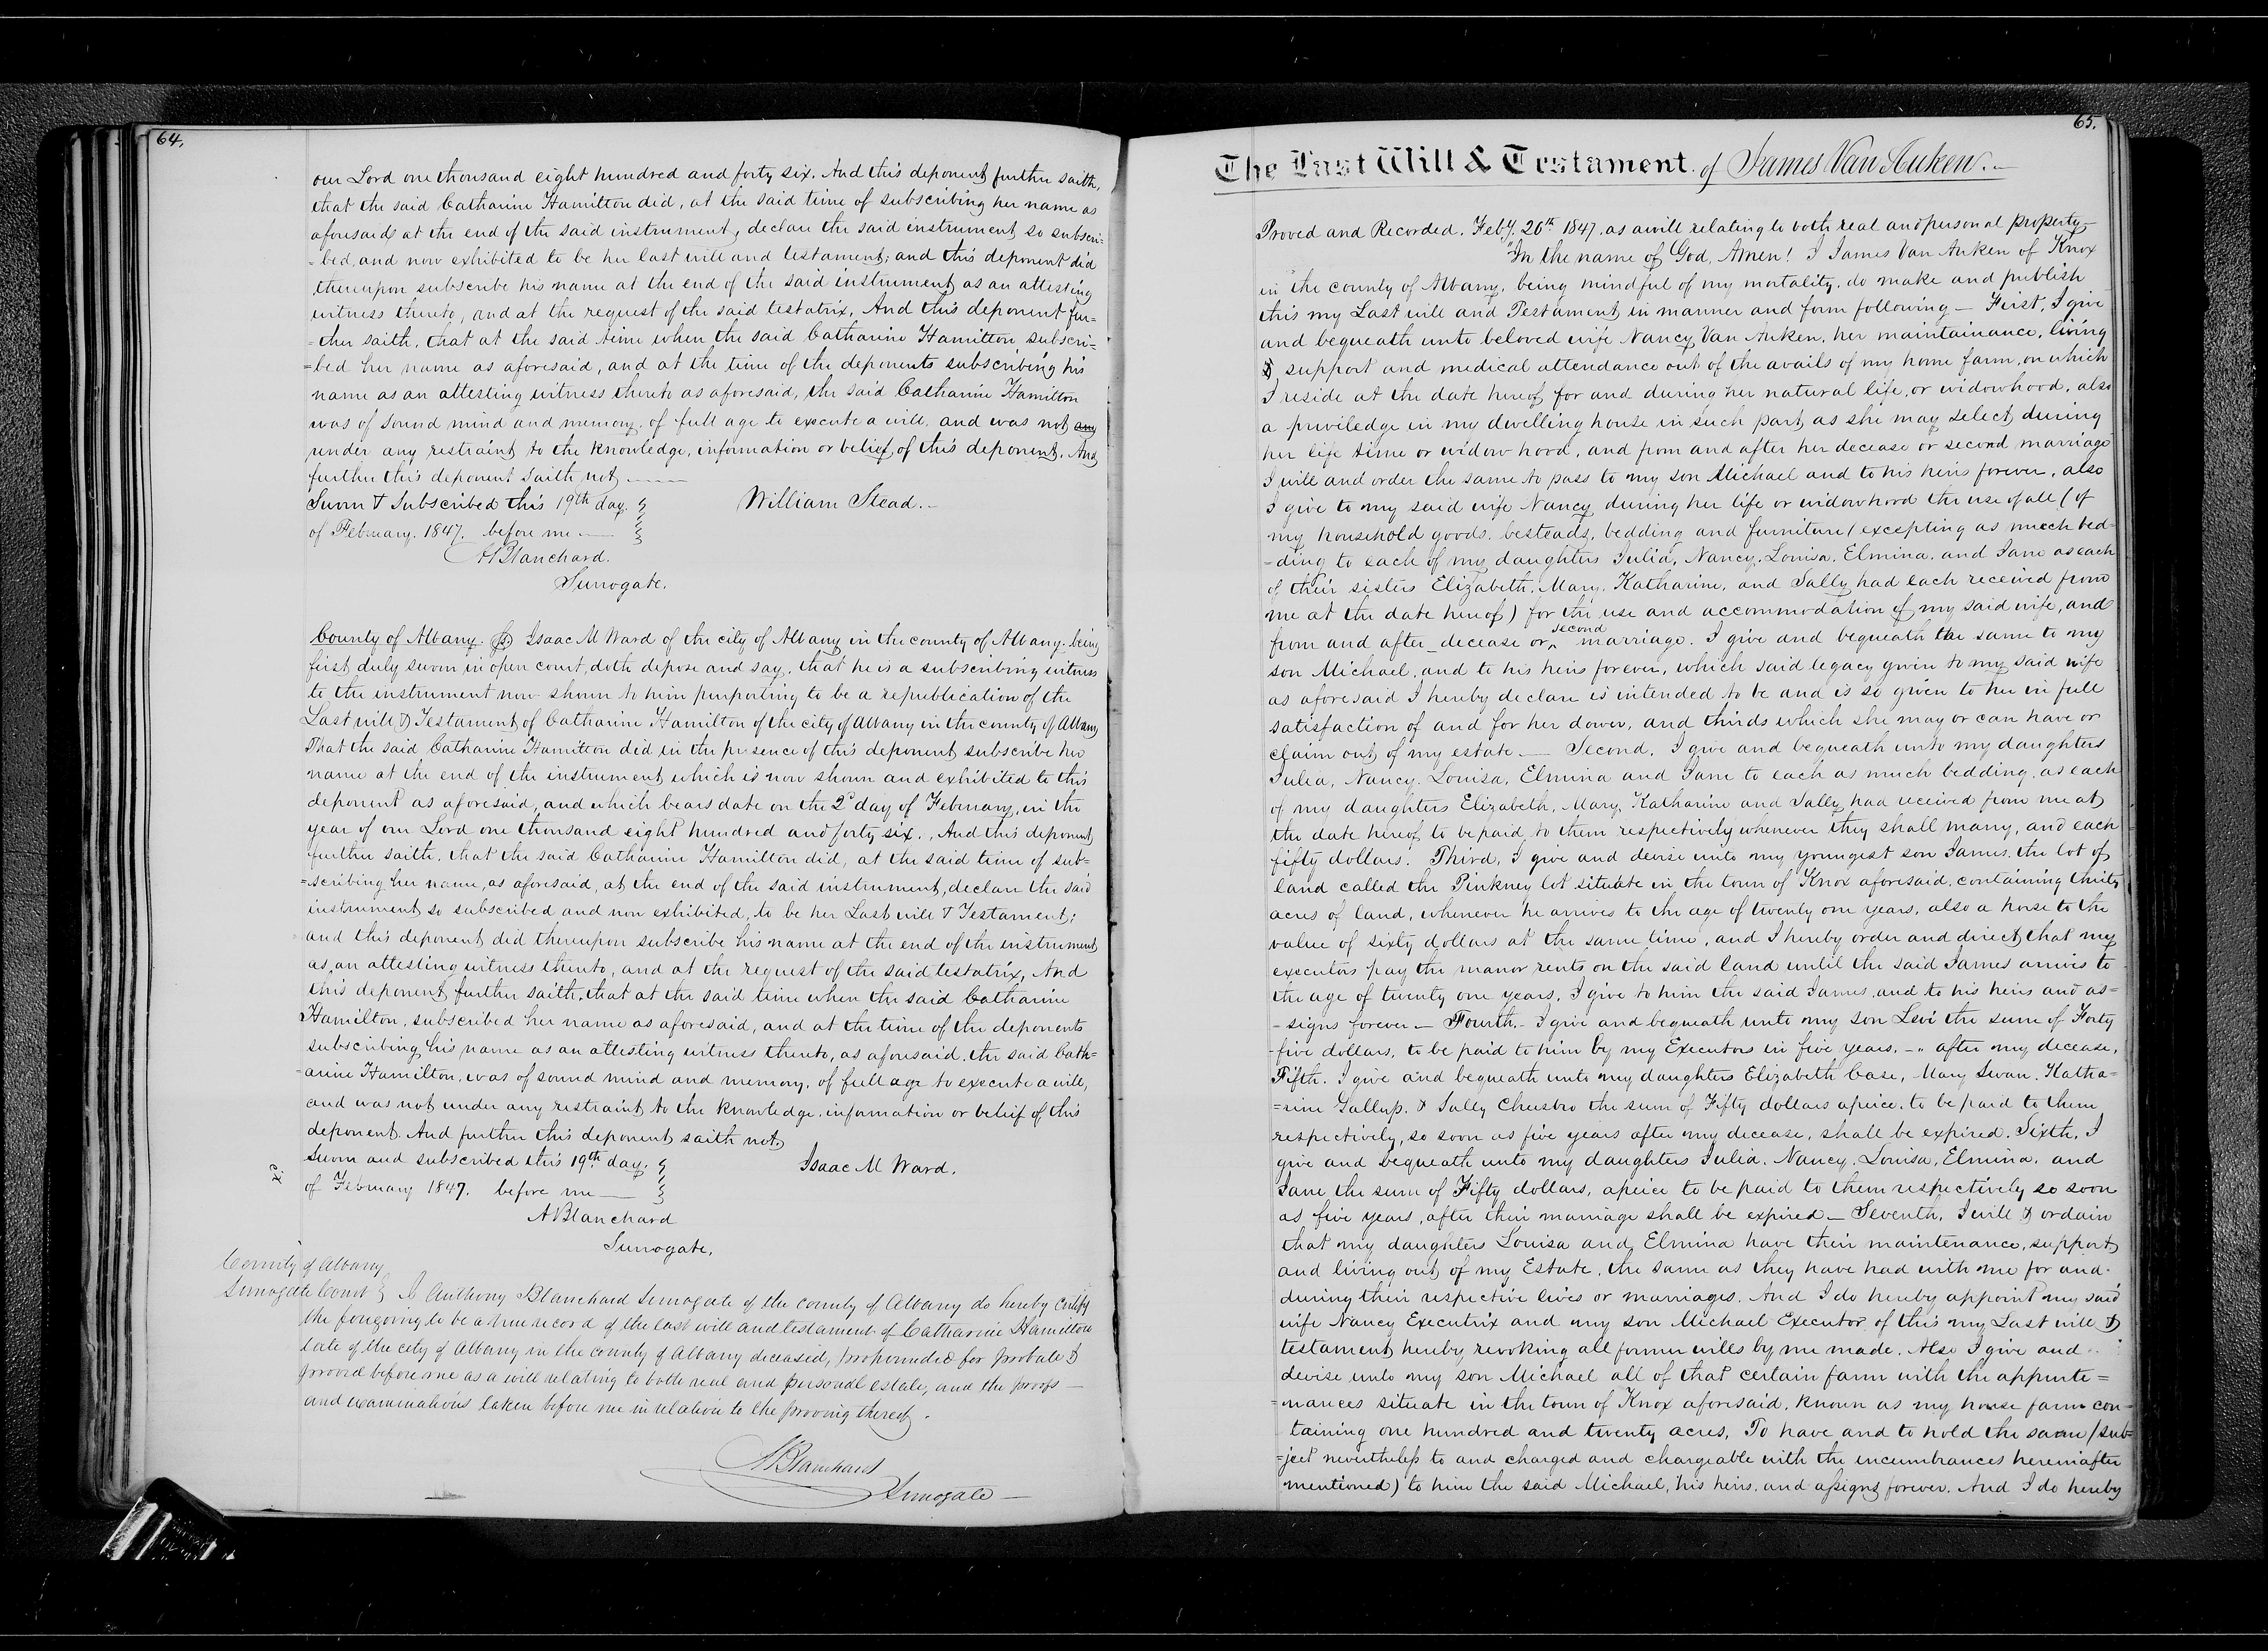 64.
our Lord one thousand eight hundred and forty six. And this deponent further saith,
that the said Catharine Hamilton did, at the said time of subscribing her name as
aforesaid at the end of the said instrument, declare the said instrument so subscri=
=bed, and now exhibited to be her last will and testament; and this deponent did
thereupon subscribe his name at the end of the said instrument as an attesting
witness thereto, and at the request of the said testatrix, And this deponent fur=
=ther saith, that at the said time when the said Catharine Hamilton subscri=
=bed her name as aforesaid, and at the time of the deponents subscribing his
name as an attesting witness thereto as aforesaid, the said Catharine Hamilton
was of sound mind and memory, of full age to execute a will, and was not any
under any restraint to the knowledge, information or belief, of this deponent. And
further this deponent saith not ———
Sworn & Subscribed this 19th day
of February. 1847. before me —
William Stead.—
A Blanchard.
Surrogate.
County of Albany. Ss Isaac M Ward of the city of Albany in the county of Albany. being
first duly sworn in open court, doth depose and say, that he is a subscribing witness
to the instrument now shown to him purporting to be a republication of the
Last will & Testament of Catharine Hamilton of the city of Albany in the county of Albany
That the said Catharine Hamilton did in the presence of this deponent subscribe her
name at the end of the instrument which is now shown and exhibited to this
deponent as aforesaid, and which bears date on the 2d day of February, in the
year of our Lord one thousand eight hundred and forty six., And this deponent
further saith, that the said Catharine Hamilton did, at the said time of sub=
=scribing her name, as aforesaid, at the end of the said instrument, declare the said
instrument so subscribed and now exhibited, to be her Last will & Testament;
and this deponent did thereupon subscribe his name at the end of the instrument
as an attesting witness thereto, and at the request of the said testatrix, And
this deponent further saith, that at the said time when the said Catharine
Hamilton, subscribed her name as aforesaid, and at the time of the deponents
subscribing his name as an attesting witness thereto, as aforesaid. the said Cath=
=arine Hamilton, was of sound mind and memory, of full age to execute a will,
and was not under any restraint to the knowledge. information or belief of this
deponent. And further this deponent saith not,
Sworn and subscribed this 19th day.
of February 1847. before me —
Isaac M Ward.
A Blanchard
Surrogate,
County of Albany
Surrogate Court I Anthony Blanchard Surrogate of the county of Albany do hereby certify
the foregoing to be a true record of the last will and testament of Catharine Hamilton
late of the city of Albany in the county of Albany deceased, propounded for probate &
proved before me as a will relating to both real and personal estate, and the proofs —
and examinations taken before me in relation to the proving thereof.
A Blanchard
Surrogate —
65.
The Last Will & Testament of James Van Auken.—
Proved and Recorded. Feby. 26th 1847. as a will relating to both real and personal property—
"In the name of God, Amen! I James Van Auken of Knox
in the county of Albany, being mindful of my mortality. do make and publish
this my Last will and Testament in manner and form following — First, I give
and bequeath unto beloved wife Nancy Van Auken. her maintainance, living
& support and medical attendance out of the avails of my home farm, on which
I reside at the date hereof for and during her natural life, or widowhood, also
a priviledge in my dwelling house in such part, as she may select, during
her life time or widow hood, and from and after her decease or second marriage
I will and order the same to pass to my son Michael and to his heirs forever, also
I give to my said wife Nancy, during her life or widowhood the use of all (of
my household goods. besteads, bedding and furniture (excepting as much bed=
=ding to each of my daughters Julia, Nancy, Louisa, Elmina. and Jane as each
of their sisters Elizabeth, Mary, Katharine, and Sally had each received from
me at the date hereof) for the use and accommodation of my said wife, and
from and after decease or second marriage. I give and bequeath the same to my
son Michael, and to his heirs forever, which said legacy given to my said wife
as aforesaid I hereby declare is intended to be and is so given to her in full
satisfaction of and for her dower, and thirds which she may or can have or
claim out of my estate — Second, I give and bequeath unto my daughters
Julia, Nancy. Louisa, Elmina and Jane to each as much bedding, as each
of my daughters Elizabeth, Mary, Katharine and Sally, had received from me at
the date hereof to be paid to them respectively whenever they shall marry, and each
fifty dollars. Third, I give and devise unto my youngest son James, the lot of
land called the Pinkney lot situate in the town of Knox aforesaid, containing thirty
acres of land, whenever he arrives to the age of twenty one years, also a horse to the
value of sixty dollars at the same time, and I hereby order and direct, that my
executors pay the manor rents on the said land until the said James arrives to
the age of twenty one years, I give to him the said James, and to his heirs and as=
=signs forever — Fourth. I give and bequeath unto my son Levi the sum of Forty
-five dollars, to be paid to him by my Executors in five years, — after my decease,
Fifth. I give and bequeath unto my daughters Elizabeth Case, Mary Swan. Katha=
=rine Gallup. & Sally Cheesbro the sum of Fifty dollars apeice, to be paid to them
respectively, so soon as five years after my decease, shall be expired. Sixth, I
give and bequeath unto my daughters Julia. Nancy. Louisa, Elmina. and
Jane the sum of Fifty dollars, apeice to be paid to them respectively so soon
as five years, after their marriage shall be expired — Seventh, I will & ordain
that my daughters Louisa and Elmina have their maintenance, support
and living out of my Estate, the same as they have had with me for and
during their respective lives or marriages. And I do hereby appoint my said
wife Nancy Executrix and my son Michael Executor of this my Last will &
testament, hereby revoking all former wills by me made. Also I give and
devise unto my son Michael all of that certain farm with the appurte=
=nances situate in the town of Knox aforesaid, known as my house farm con=
taining one hundred and twenty acres, To have and to hold the same (sub=
=ject nevertheless to and charged and chargeable with the incumbrances hereinafter
mentioned) to him the said Michael, his heirs, and assigns forever. And I do hereby